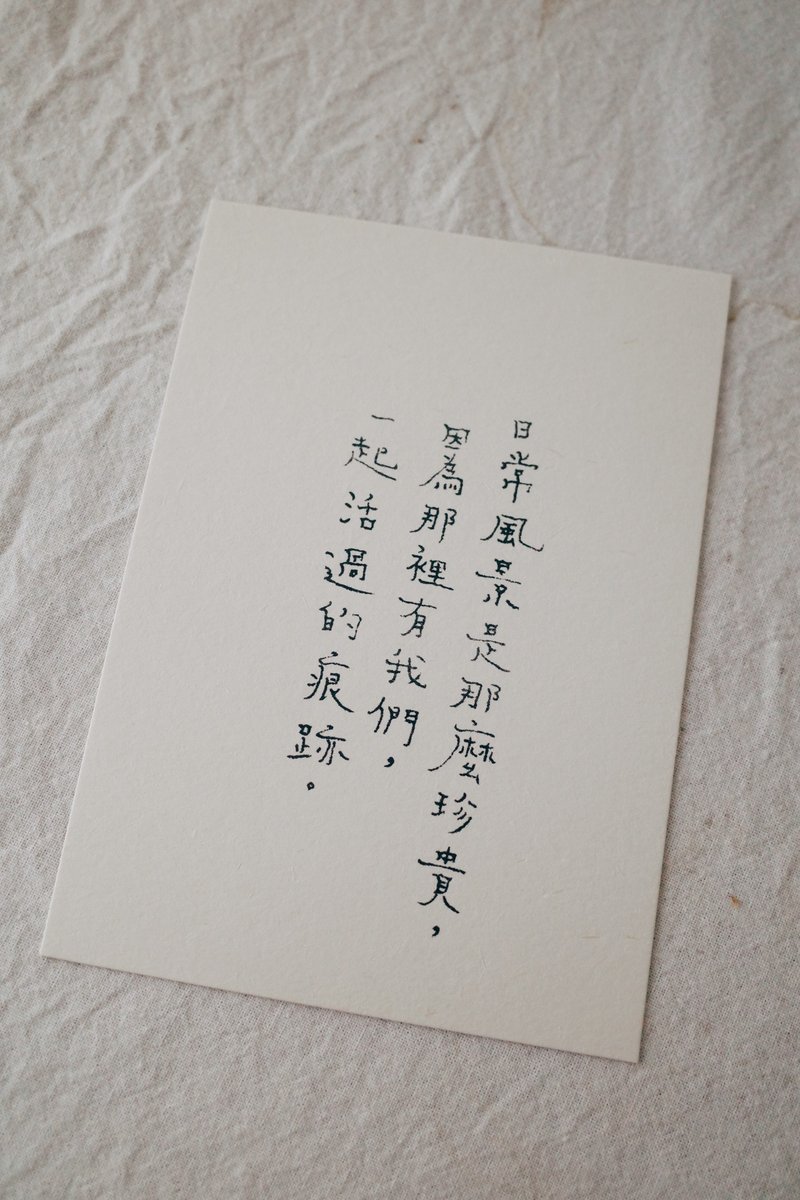 日常風景是那麼珍貴，
因為那裡有我們，
一起活過的痕跡。